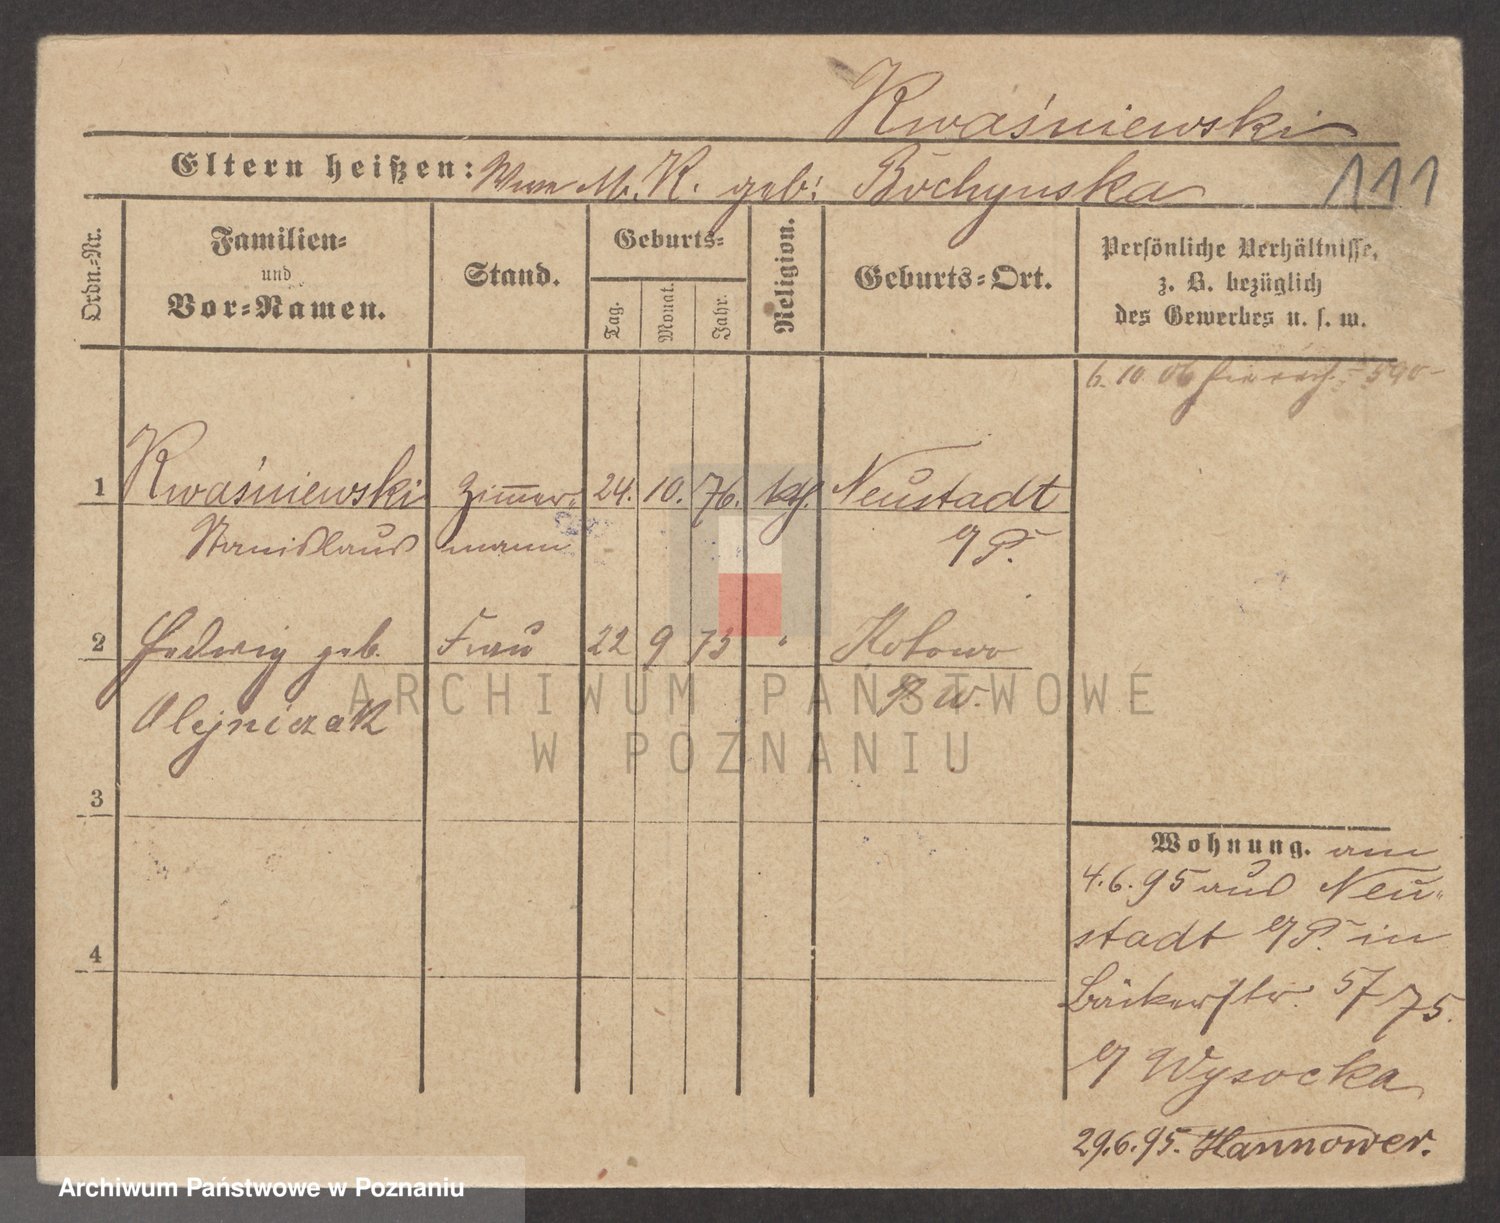 Kwaśniewski
Eltern heißen: Wwe M. K. geb: Bochynska
111
Ordn.-Nr.
Familien-
und
Vor-Namen.
Stand.
Geburts-
Tag.
Monat.
Jahr.
Religion.
Geburts-Ort.
Persönliche Verhältnisse,
z. B. bezüglich
des Gewerbes u. s. w.
6. 10 06
1 Kwaśniewski Zimmer- 24. 10. 76. kth. Neustadt
Stanislaus mann a/W.
2 Hedwig geb. Frau 22 9 73 " Kobowo
Olejniczak
3
4
Wohnung. am
4.6.95 aus Neu-
stadt in
Bäckerstr. 5/7 75.
b/ Wysocka
29.6.95. Hannower.
ARCHIWUM PAŃSTWOWE
W POZNANIU
Archiwum Państwowe w Poznaniu